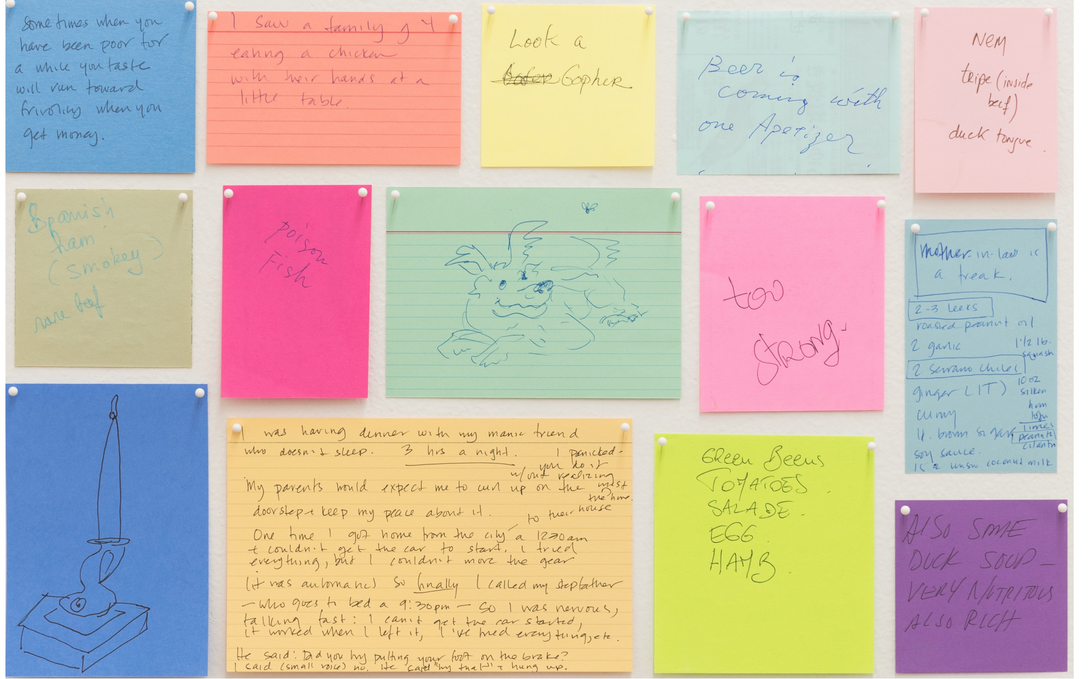 Sometimes when you
have been poor for
a while you taste
will run toward
frivolity when you
get money.
I saw a family of 4
eating a chicken
with their hands at a
little table.
Look a
Gopher
Beer is
coming with
one Apetizer.
NEM
tripe (inside
beef)
duck tongue.
Spanish
ham.
(smokey)
rare beef
poison
Fish
too
strong.
mother-in-law is
a freak.
2-3 leeks
roasted peanut oil
2 garlic
1 1/2 lb.
squash
2 serrano chiles
ginger (1T)
10 oz
silken
curry
limes
peanuts
cilantro
soy sauce.
coconut milk
I was having dinner with my manic friend
who doesn't sleep. 3 hrs a night. I panicked.
you do it
w/out realizing
My parents would expect me to curl up on the
doorstep + keep my peace about it.
to their house
One time I got home from the city @ 1230am
+ couldn't get the car to start. I tried
everything, but I couldn't move the gear
(it was automatic) so finally I called my stepfather
— who goes to bed @ 9:30pm — so I was nervous,
talking fast: I can't get the car started,
it worked when I left it, I've tried everything, etc.
He said: Did you try putting your foot on the brake?
I said (small voice) no. He said "try that" + hung up.
GREEN BEENS
TOMATOES.
SALADE.
EGG
HAMB.
ALSO SOME
DUCK SOUP —
VERY NUTRITOUS
ALSO RICH